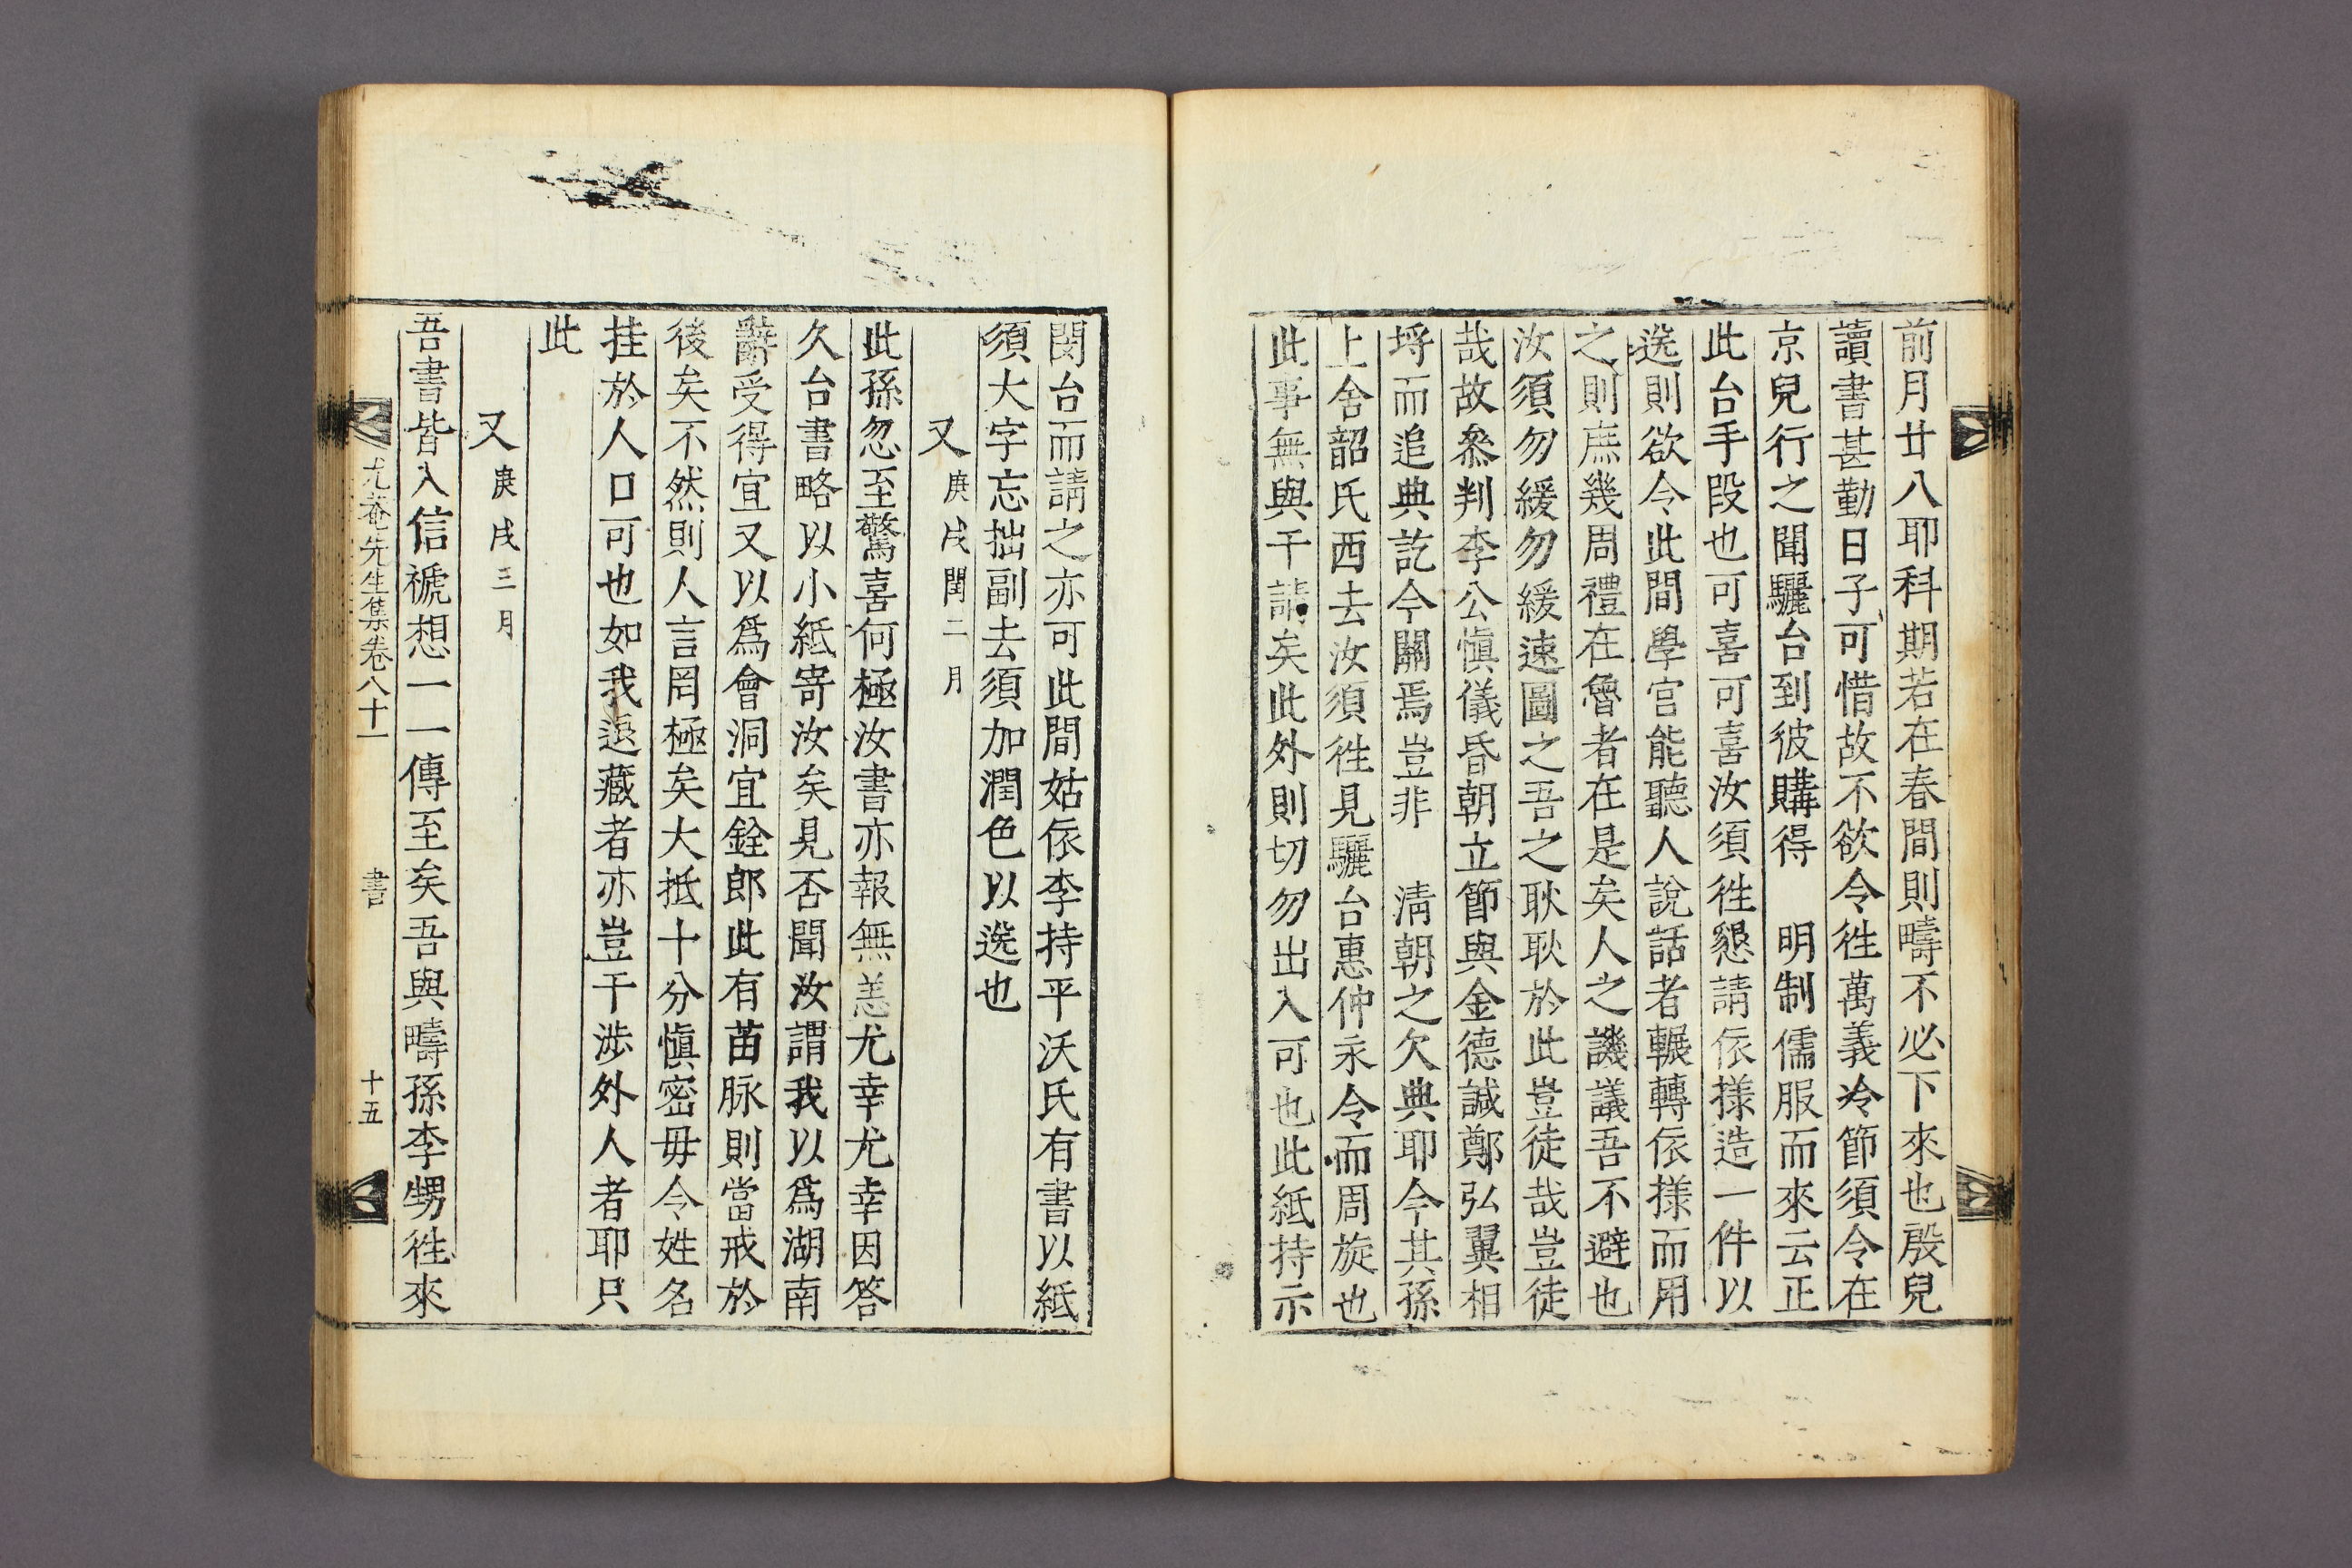 前月廿八耶科期若在春間則疇不必下來也殷兒
讀書甚勤日子可惜故不欲令徃萬義冷節須令在
京兒行之聞驪台到彼購得　明制儒服而來云正
此台手段也可喜可喜汝須徃懇請依㨾造一件以
送則欲令此間學官能聽人說話者輾轉依㨾而用
之則庶幾周禮在魯者在是矣人之譏議吾不避也
汝須勿緩勿緩速圖之吾之耿耿於此豈徒哉豈徒
哉故叅判李公愼儀昏朝立節與金德諴鄭弘翼相
埒而追典訖今闕焉豈非　淸朝之欠典耶今其孫
上舍韶氏西去汝須徃見驪台惠仲永令而周旋也
此事無與干請矣此外則切勿出入可也此紙持示
閔台而請之亦可此間姑依李持平沃氏有書以紙
須大字忘拙副去須加潤色以送也
又庚戌閏二月
此孫忽至驚喜何極汝書亦報無恙尤幸尤幸因答
久台書略以小紙寄汝矣見否聞汝謂我以爲湖南
辭受得宜又以爲會洞宜銓郎此有苗脉則當戒於
後矣不然則人言罔極矣大抵十分愼密毋令姓名
挂於人口可也如我退藏者亦豈干涉外人者耶只
此
又庚戌三月
吾書皆入信褫想一一傳至矣吾與疇孫李甥徃來
尤菴先生集卷八十一　書　十五